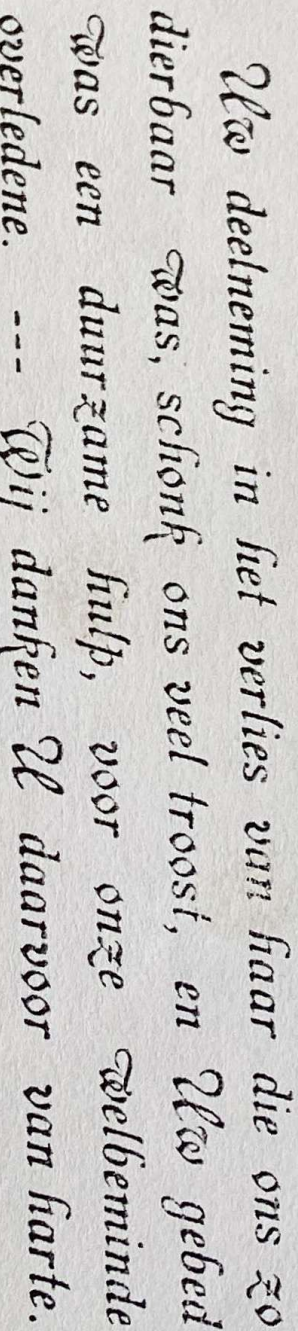 Uw deelneming in het verlies van haar die ons zo
dierbaar was, schonk ons veel troost, en Uw gebed
was een duurzame hulp, voor onze welbeminde
overledene. --- Wij danken U daarvoor van harte.